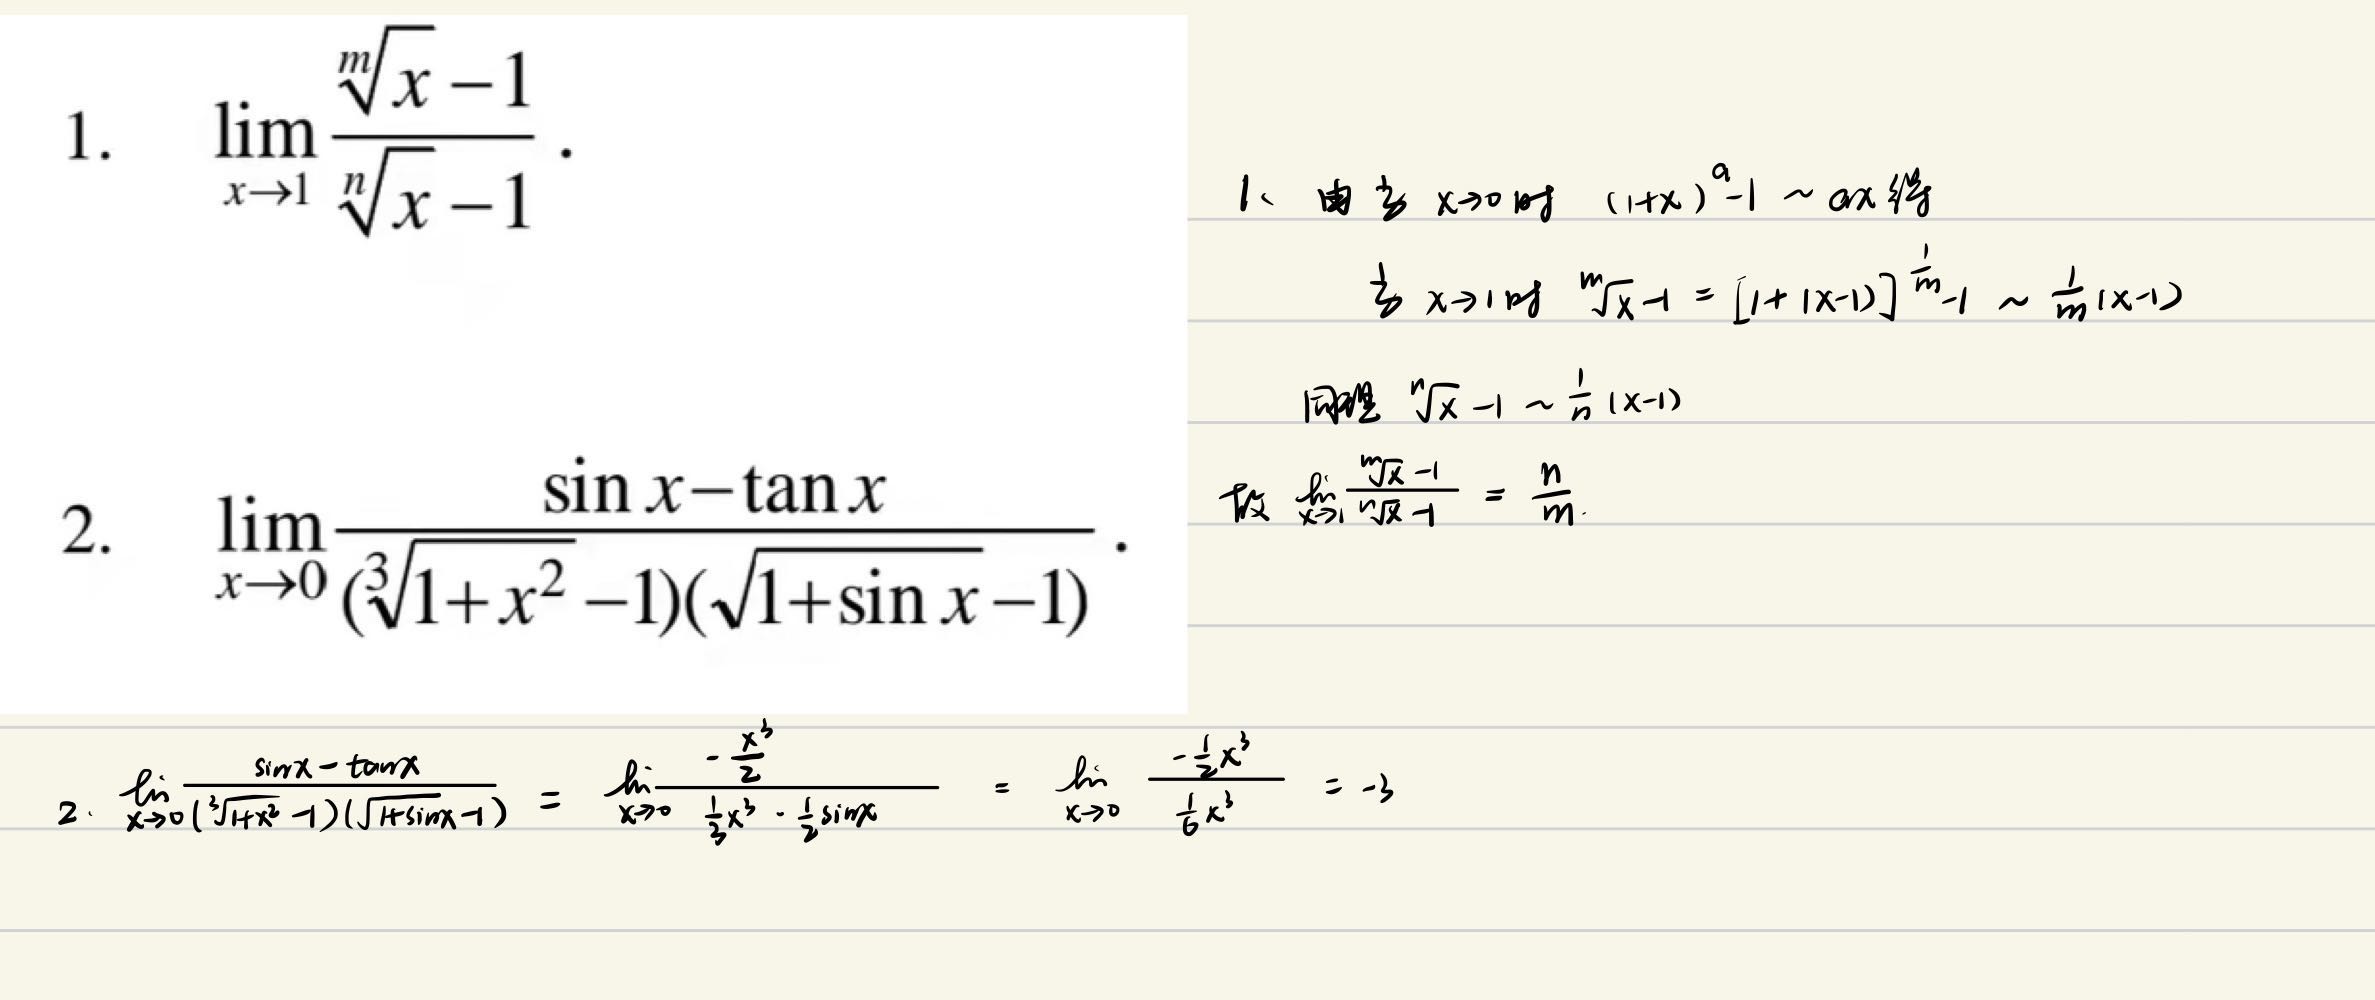 1. lim_{x→1} (\sqrt[m]{x} − 1)/(\sqrt[n]{x} − 1).
2. lim_{x→0} (sin x − tan x)/((\sqrt[3]{1+x^2} − 1)(\sqrt{1+sin x} − 1)).
1、由当 x→0时 (1+x)^a −1 ~ ax 得
当 x→1时 \sqrt[m]{x} −1 = [1+(x−1)]^{1/m} −1 ~ 1/m (x−1)
同理 \sqrt[n]{x} −1 ~ 1/n (x−1)
故 lim_{x→1} (\sqrt[m]{x} −1)/(\sqrt[n]{x} −1) = n/m.
2. lim_{x→0} (sinx − tanx)/((\sqrt[3]{1+x^2} −1)(\sqrt{1+sinx} −1)) = lim_{x→0} (−x^3/2)/(1/3 x^3 · 1/2 sinx) = lim_{x→0} (−1/2 x^3)/(1/6 x^3) = −3